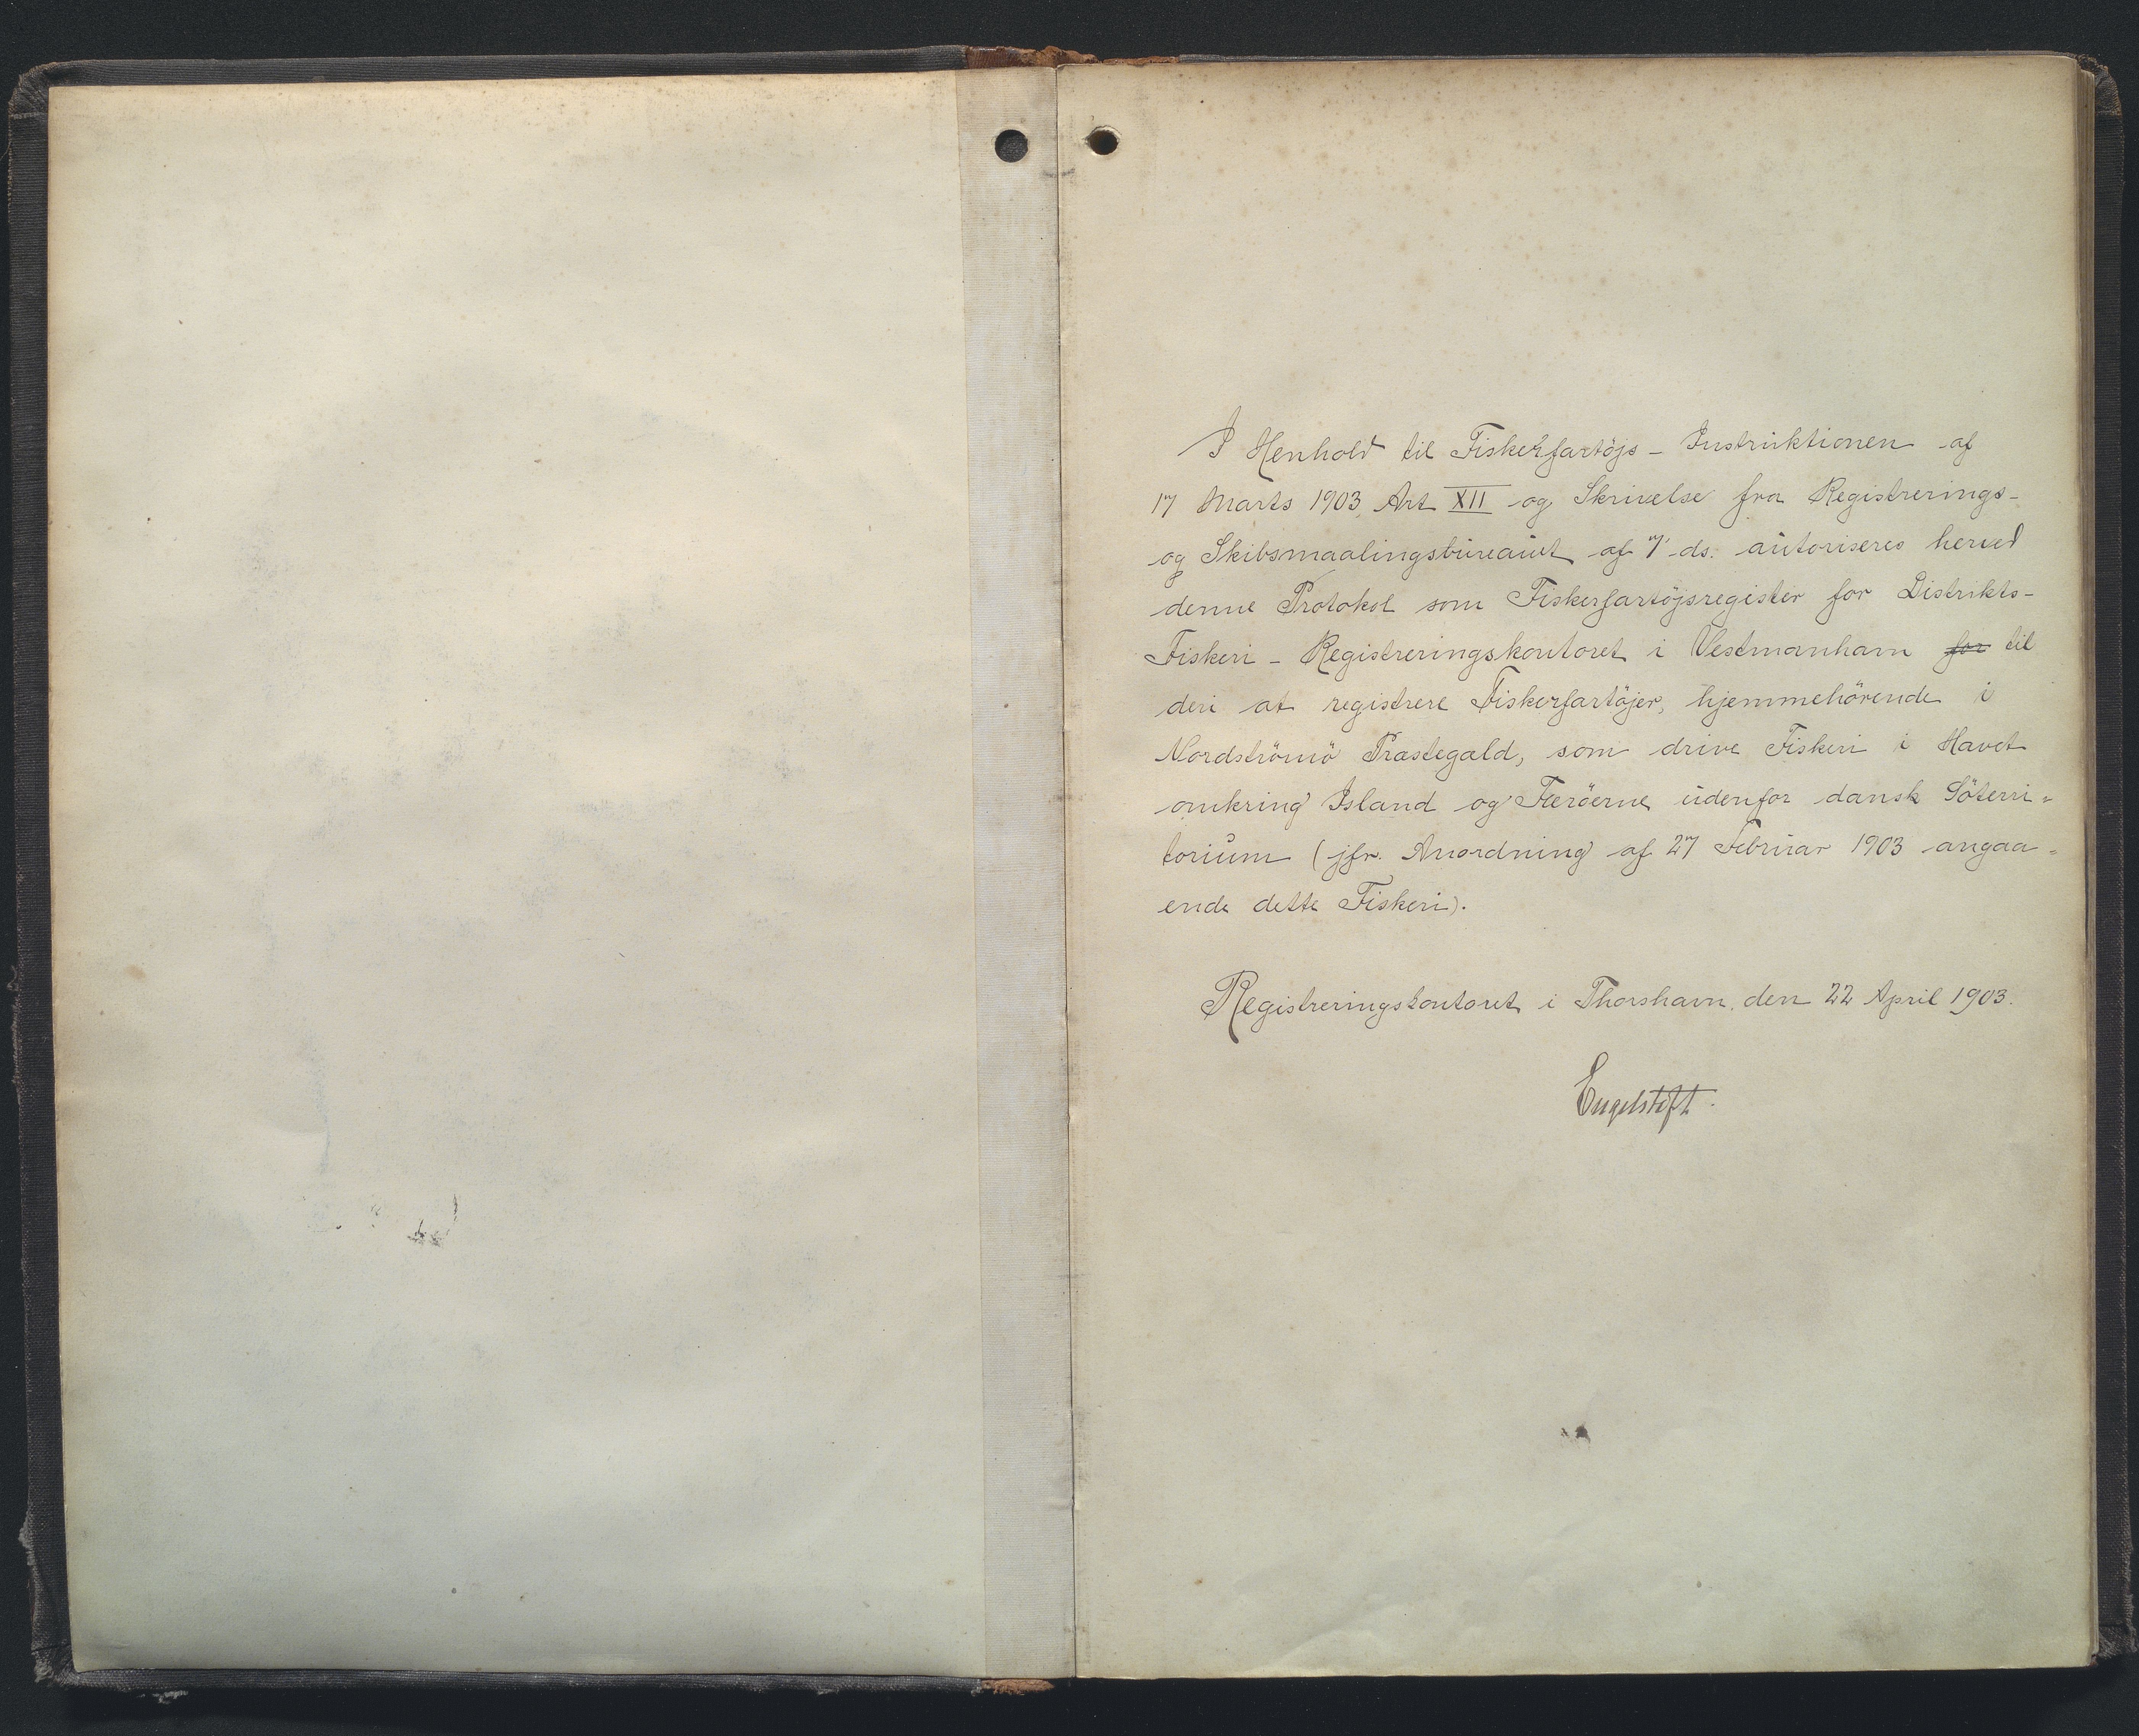 I Henhold til Fiskerfartöjs - Instruktionen af
17 Marts 1903, Art XII og Skrivelse fra Registrerings-
og Skibsmaalingsbureauet af 7' ds. autoriseres herved
denne Protokol som Fiskerfartöjsregister for Distrikts-
Fiskeri - Registreringskontoret i Vestmanhavn for til
deri at registrere Fiskerfartöjer, hjemmehörende i
Nordströmö Præstegæld, som drive Fiskeri i Havet
omkring Island og Færöerne udenfor dansk Söterri-
torium (jfr. Anordning af 27 Februar 1903 angaa-
ende dette Fiskeri).
Registreringskontoret i Thorshavn, den 22 April 1903.
Engelstoft.